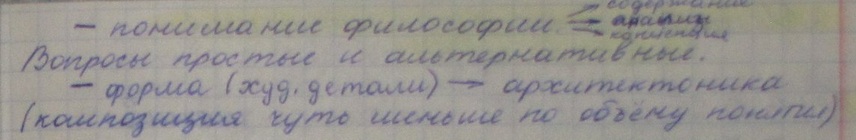 содержание
— понимание философии — анализ
Вопросы простые и альтернативные.
— форма (худ. детали) → архитектоника
(композиция чуть меньше по объёму понятия)